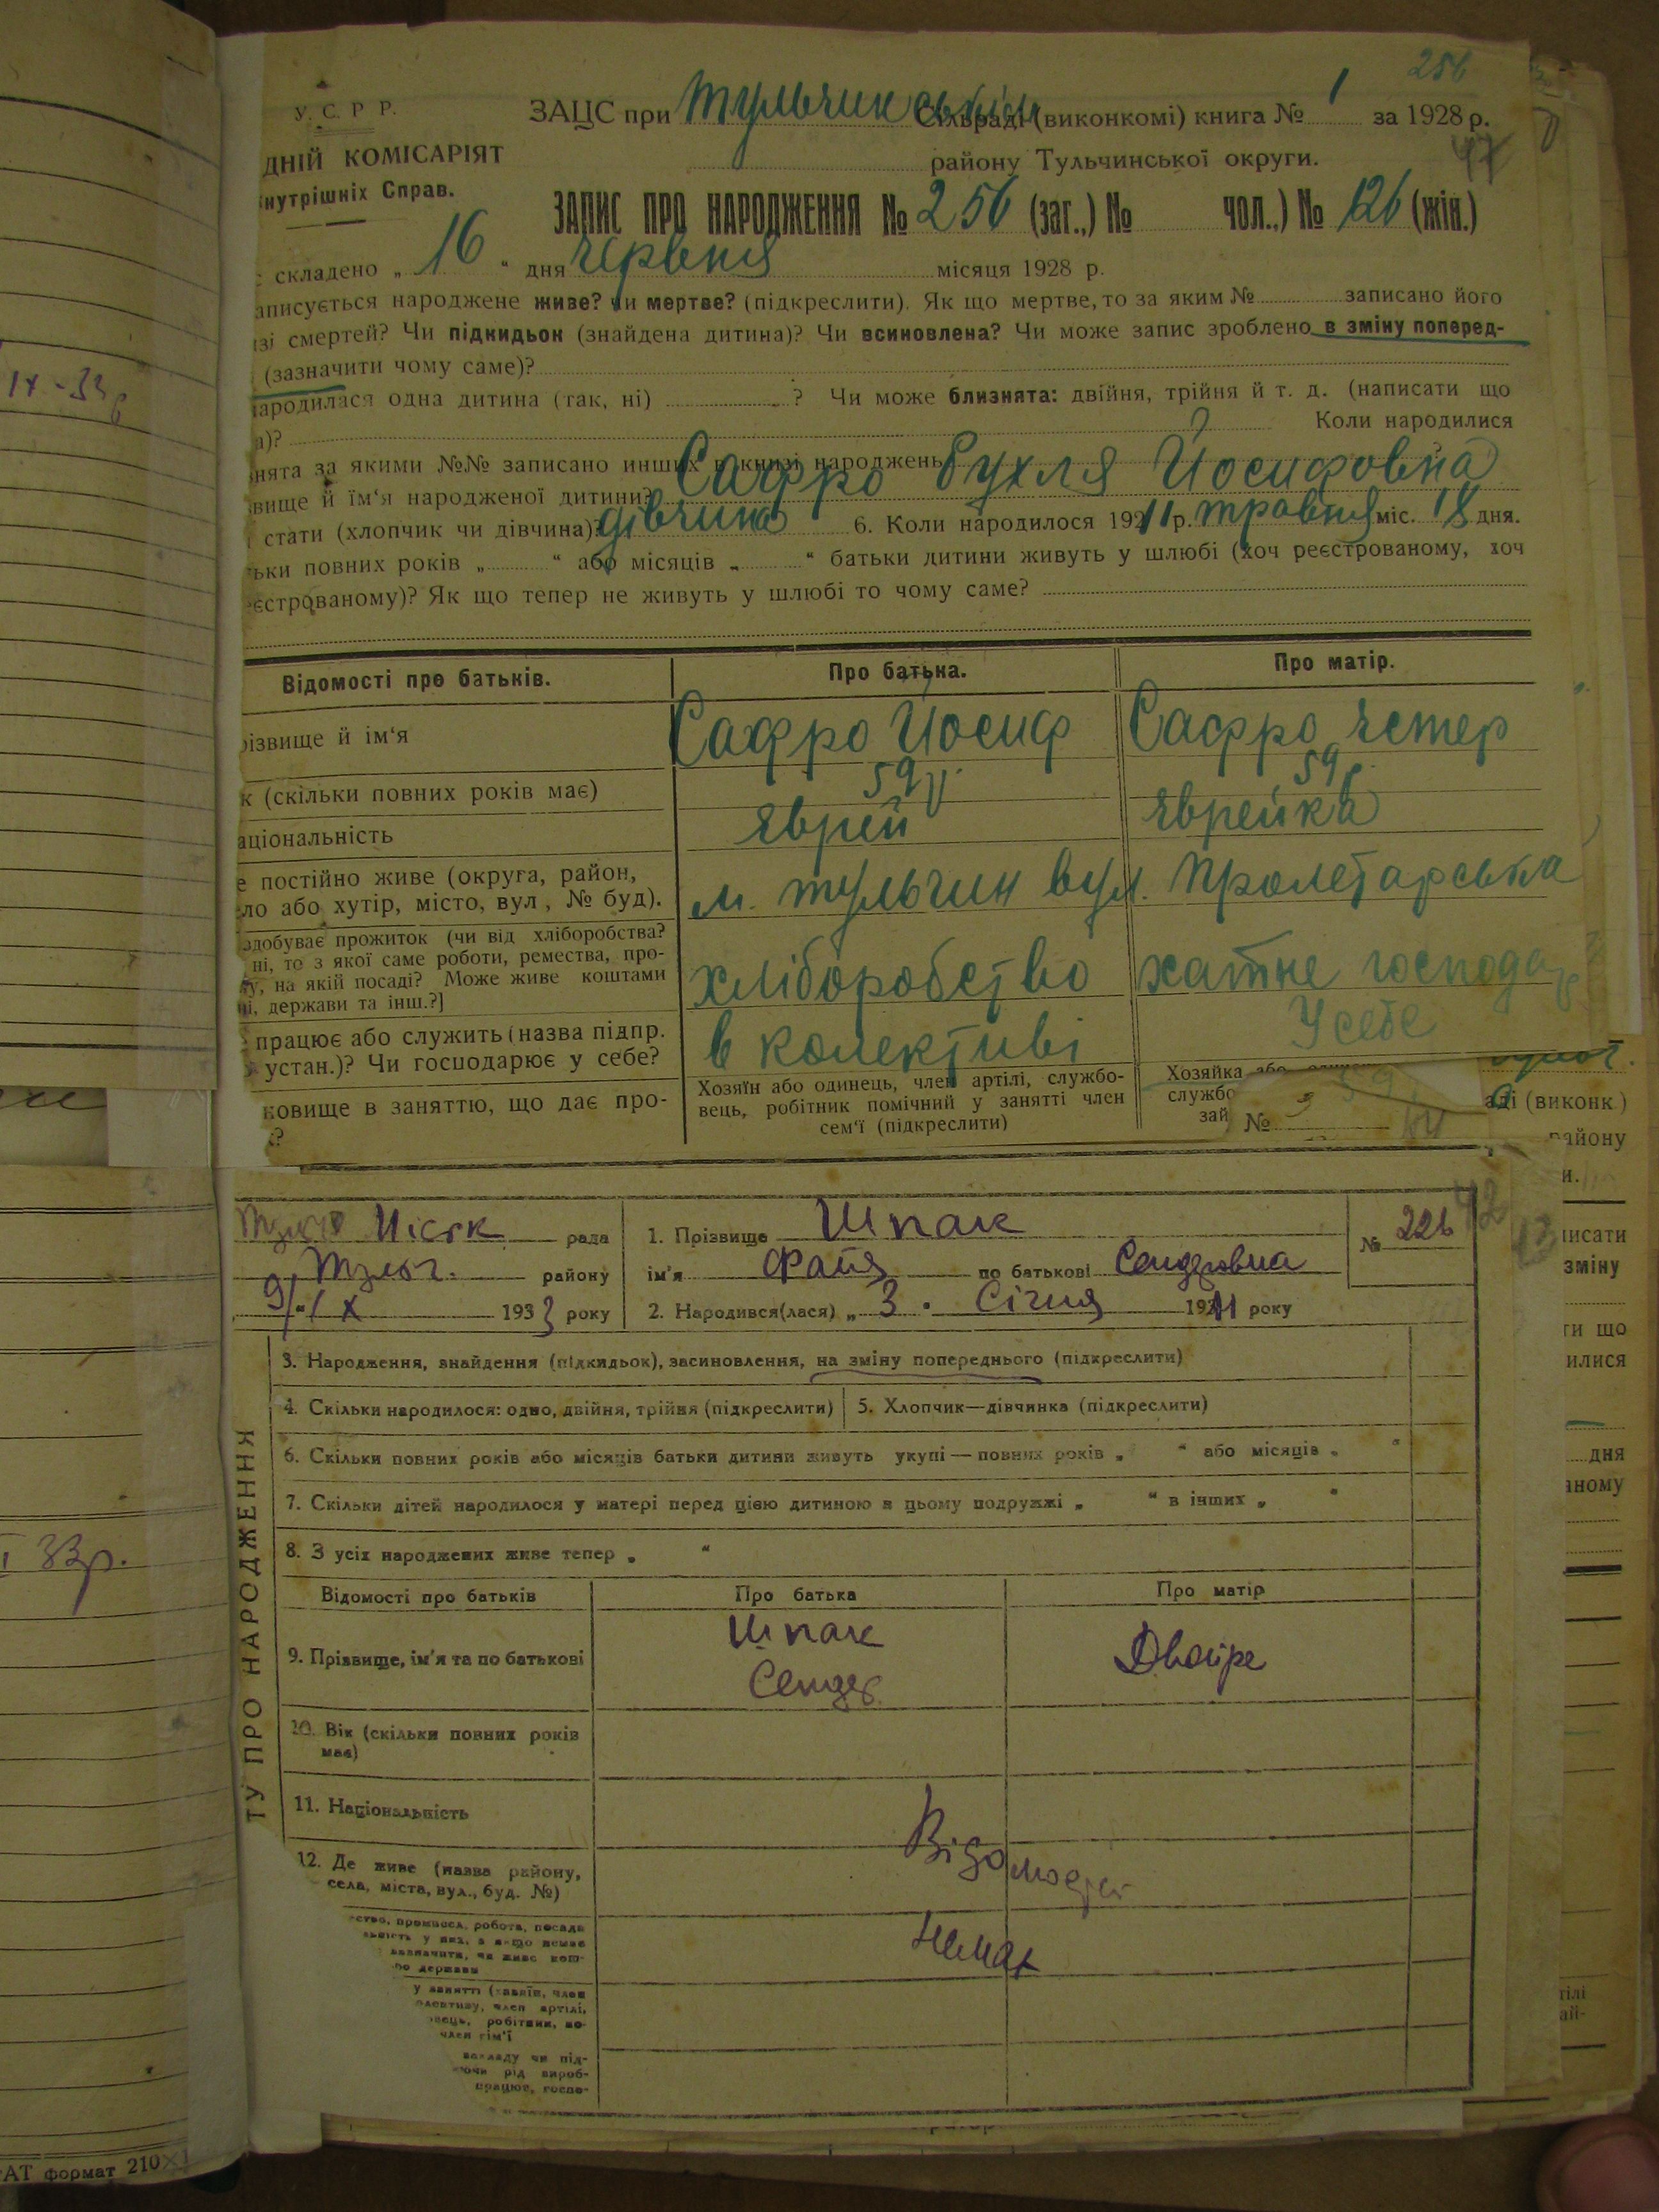 256
У. С. Р. Р.
ЗАЦС при Тульчинській Сільраді (виконкомі) книга № 1 за 1928 р.
47
ДНІЙ КОМІСАРІЯТ
району Тульчинської округи.
нутрішніх Справ.
ЗАПИС ПРО НАРОДЖЕННЯ № 256 (заг.,) № чол..) № 126 (жін.)
складено „ 16 “ дня червня місяця 1928 р.
аписується народжене живе? чи мертве? (підкреслити). Як що мертве, то за яким № записано його
зі смертей? Чи підкидьок (знайдена дитина)? Чи всиновлена? Чи може запис зроблено в зміну поперед-
(зазначити чому саме)?
народилася одна дитина (так, ні) ? Чи може близнята: двійня, трійня й т. д. (написати що
а)? Коли народилися
нята за якими №№ записано инших в книзі народжень?
звище й їм‘я народженої дитини? Сафро Рухля Йосифовна
стати (хлопчик чи дівчина)? дівчина 6. Коли народилося 1911 р. травня міс. 18 дня.
ьки повних років „ “ або місяців „ “ батьки дитини живуть у шлюбі (хоч реєстрованому, хоч
еєстрованому)? Як що тепер не живуть у шлюбі то чому саме?
Відомості про батьків. Про батька. Про матір.
різвище й ім‘я Сафро Йосиф Сафро Естер
к (скільки повних років має) 59 р. 59 р.
аціональність Єврей Єврейка
е постійно живе (округа, район,
ло або хутір, місто, вул, № буд). м. Тульчин вул. Пролетарська
здобуває прожиток (чи від хліборобства?
ні, то з якої саме роботи, ремества, про-
у, на якій посаді? Може живе коштами
ні, держави та інш.?] хліборобство хатнє господар
працює або служить (назва підпр.
устан.)? Чи господарює у себе? в колективі У себе
ковище в заняттю, що дає про-
?
Хозяїн або одинець, член артілі, службо-
вець, робітник помічний у занятті член
сем‘ї (підкреслити)
Хозяйка або
службо
зай
№
аді (виконк.)
району
Міськ рада
1. Прізвище Шпак
№ 226
Тульч. району
ім‘я Файя по батькові Сендеровна
9/IX 1933 року
2. Народився(лася) „ 3 . Січня 1911 року
3. Народження, знайдення (підкидьок), засиновлення, на зміну попереднього (підкреслити)
4. Скільки народилося: одно, двійня, трійня (підкреслити) 5. Хлопчик—дівчинка (підкреслити)
6. Скільки повних років або місяців батьки дитини живуть укупі — повних років „ “ або місяців „ “
7. Скільки дітей народилося у матері перед цією дитиною в цьому подружжі „ “ в інших „ “
8. З усіх народжених живе тепер „ “
Відомості про батьків Про батька Про матір
9. Прізвище, ім‘я та по батькові Шпак Сендер Двойре
10. Вік (скільки повних років
має)
11. Національність
12. Де живе (назва району,
села, міста, вул., буд. №)
Відомостей
Немає
ство, промисел, робота, посада
зазначити, чи живе кош-
по держави
у занятті (хазяїн, член
олективу, член артілі,
вець, робітник, по-
член сім‘ї
закладу чи під-
ючи рід вироб-
працює, госпо-
ТУ ПРО НАРОДЖЕННЯ
IX-33
33р.
АТ формат 210×
исати
зміну
ти що
илися
дня
аному